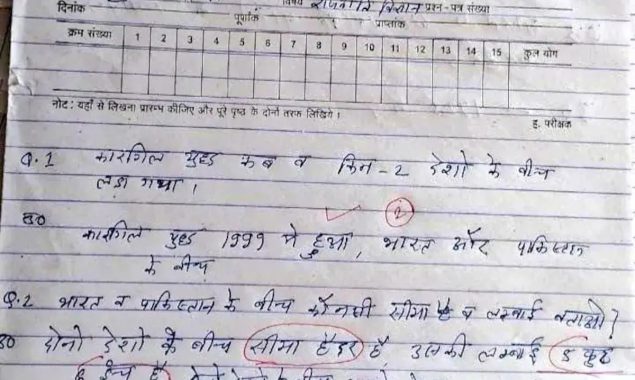 दिनांक विषय राजनीति विज्ञान प्रश्न-पत्र संख्या
पूर्णांक प्राप्तांक
क्रम संख्या 1 2 3 4 5 6 7 8 9 10 11 12 13 14 15 कुल योग
नोट : यहाँ से लिखना प्रारम्भ कीजिए और पूरे पृष्ठ के दोनों तरफ लिखिये।
ह. परीक्षक
Q.1 कारगिल युद्ध कब व किन-2 देशो के बीच
लडा गया।
2
उ० कारगिल युद्ध 1999 मे हुआ, भारत और पाकिस्तान
के बीच
Q.2 भारत व पाकिस्तान के बीच कौनसी सीमा है व लम्बाई बताओ?
उ० दोनो देशो के बीच सीमा हैदर है उसकी लम्बाई 5 फुट
6 ईन्च है